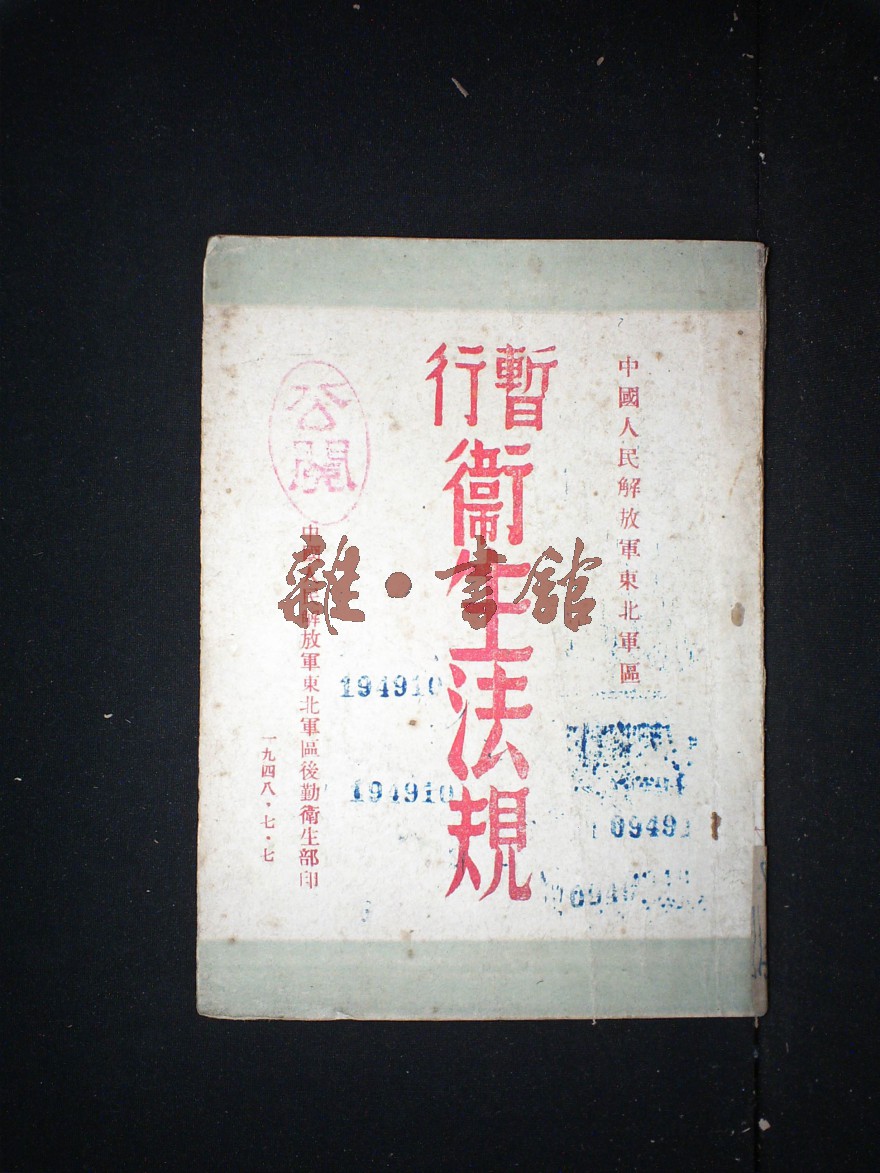 中國人民解放軍東北軍區
暫行
衛生法規
公開
中國人民解放軍東北軍區後勤衛生部印
一九四八·七·七
雜·書館
194910
194910